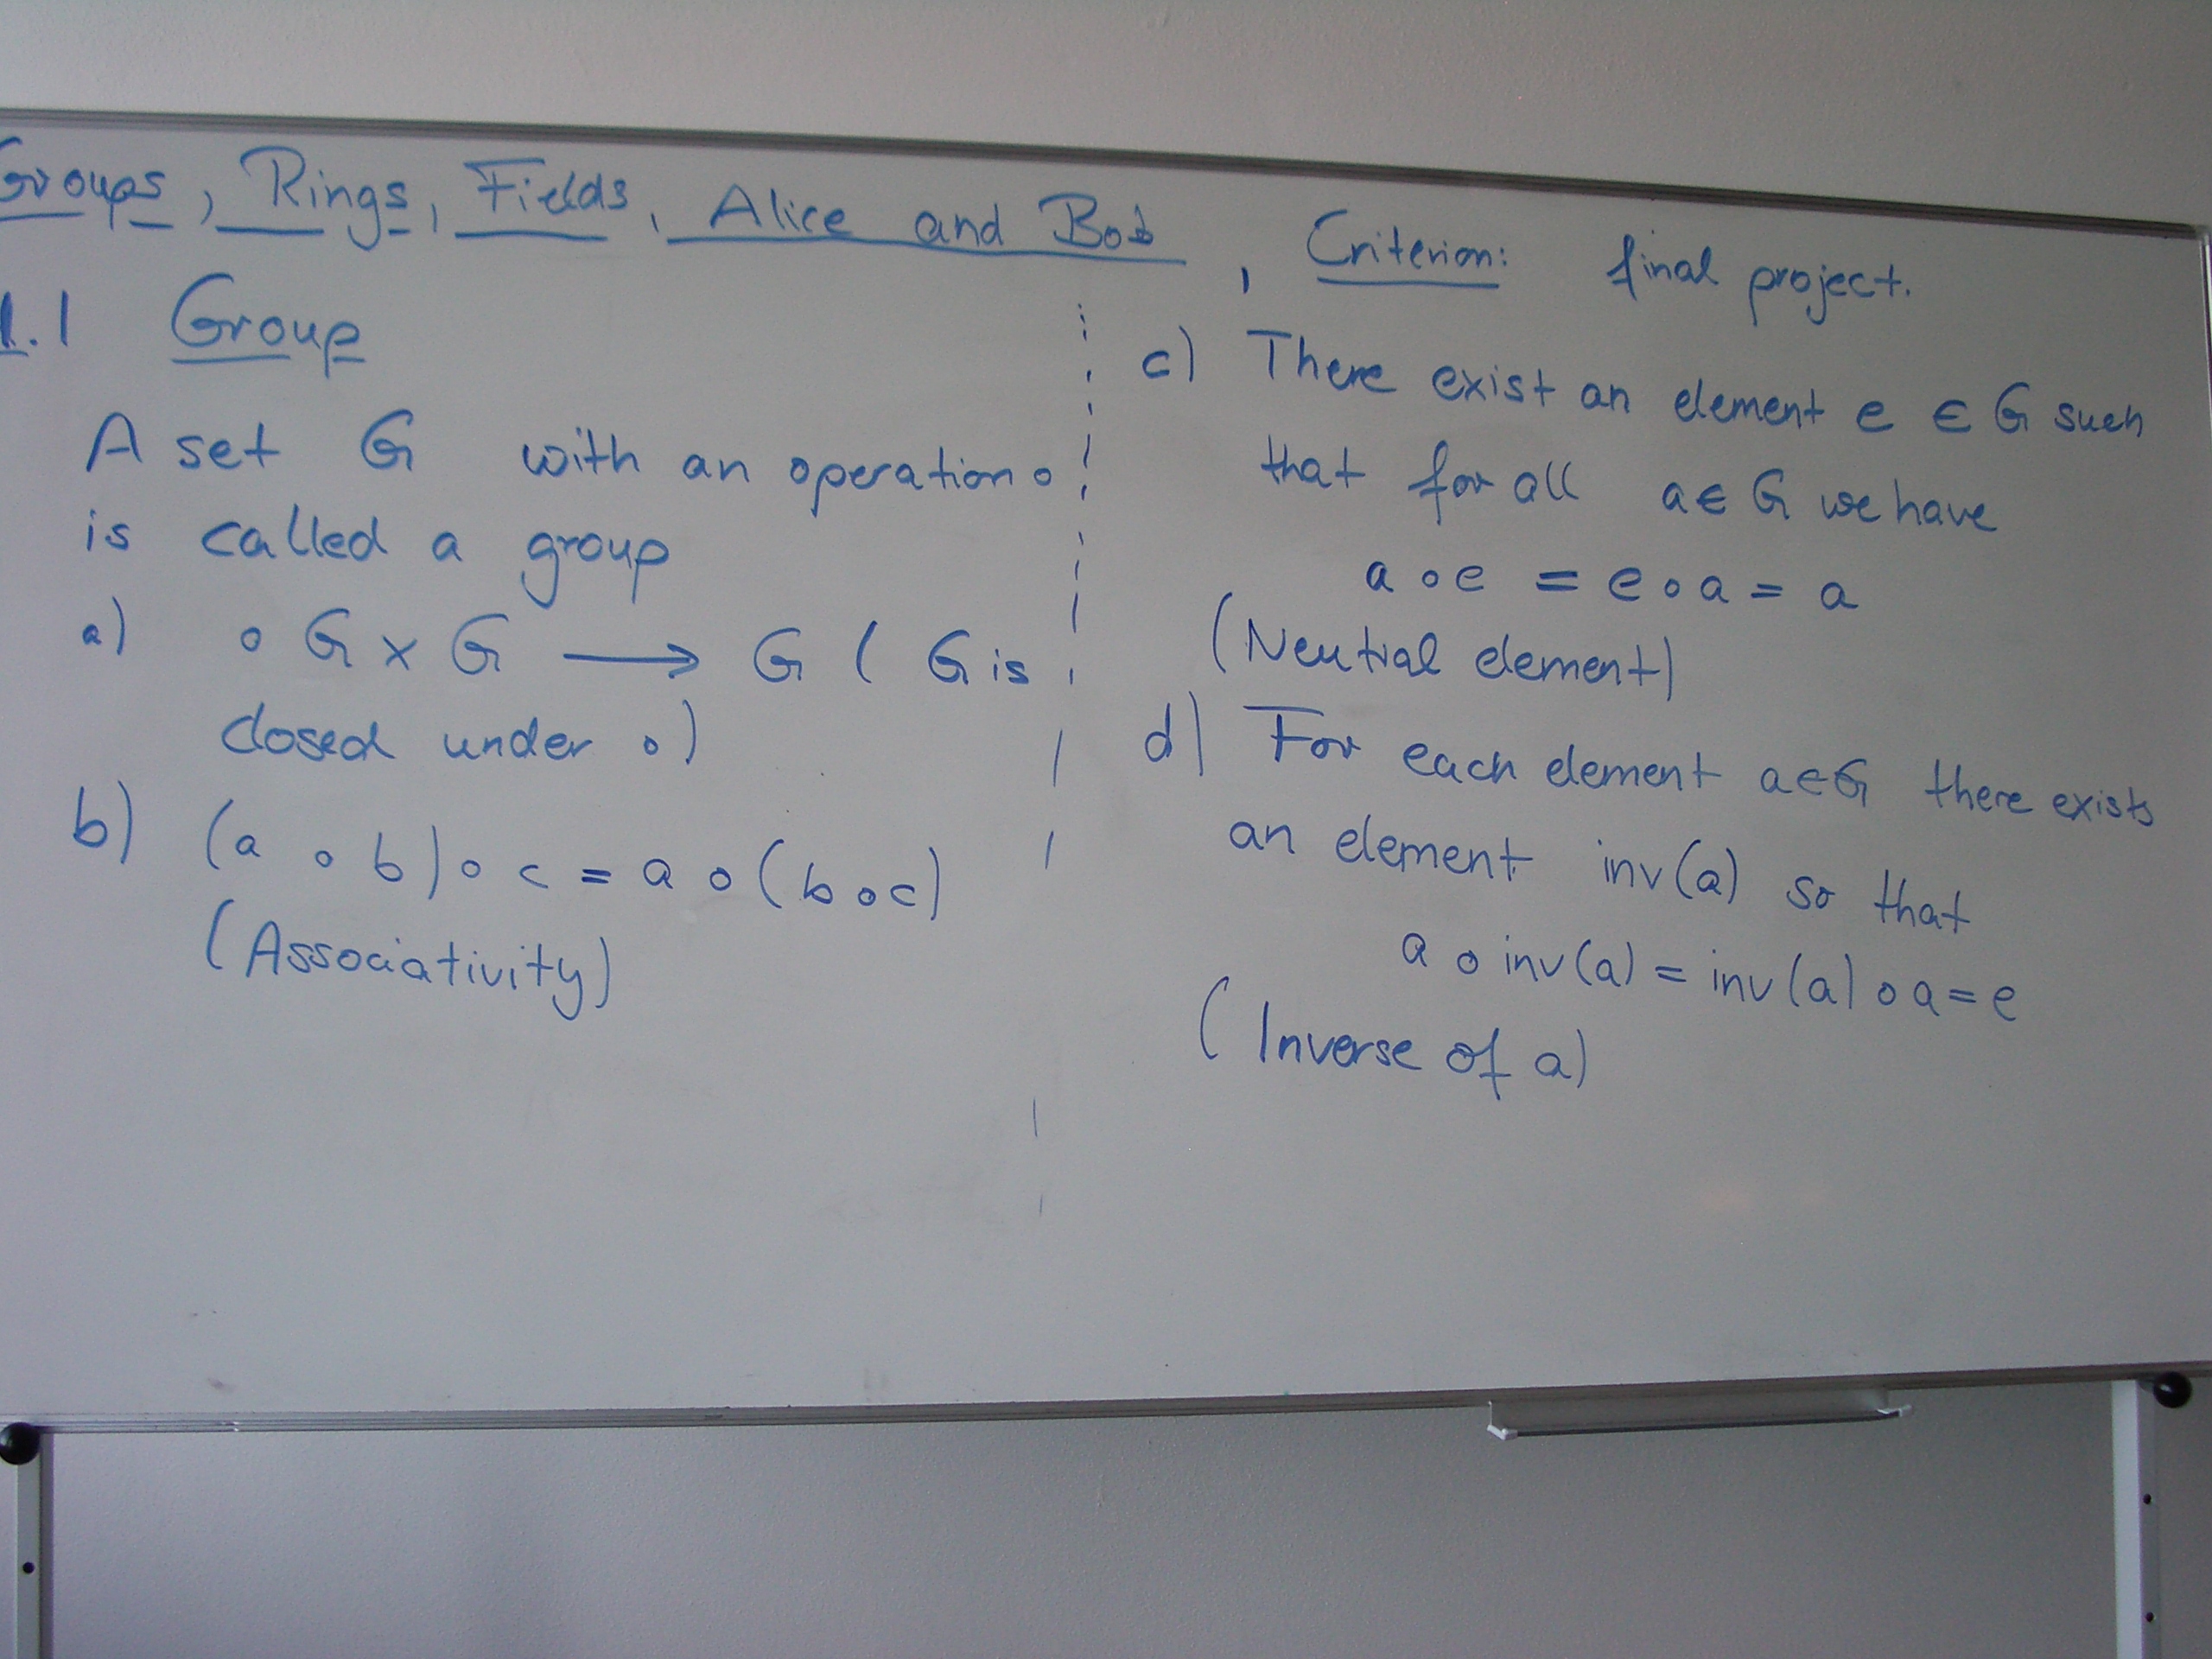 Groups, Rings, Fields, Alice and Bob, Criterion: final project.
1.1 Group
A set G with an operation ∘
is called a group
a) ∘ G × G ⟶ G ( G is
closed under ∘)
b) (a ∘ b) ∘ c = a ∘ (b ∘ c)
(Associativity)
c) There exist an element e ∈ G such
that for all a ∈ G we have
a ∘ e = e ∘ a = a
(Neutral element)
d) For each element a ∈ G there exists
an element inv(a) so that
a ∘ inv(a) = inv(a) ∘ a = e
(Inverse of a)